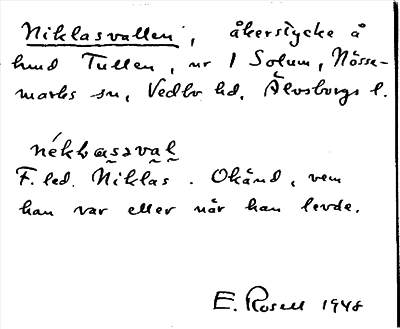 Niklasvallen, åkerstycke å
hmd Tullen, nr 1 Solum, Nösse-
marks sn, Vedbo hd, Älvsborgs l.
nékḷasəvaḷ
F. led. Niklas. Okänd, vem
han var eller när han levde.
E. Rosell 1948